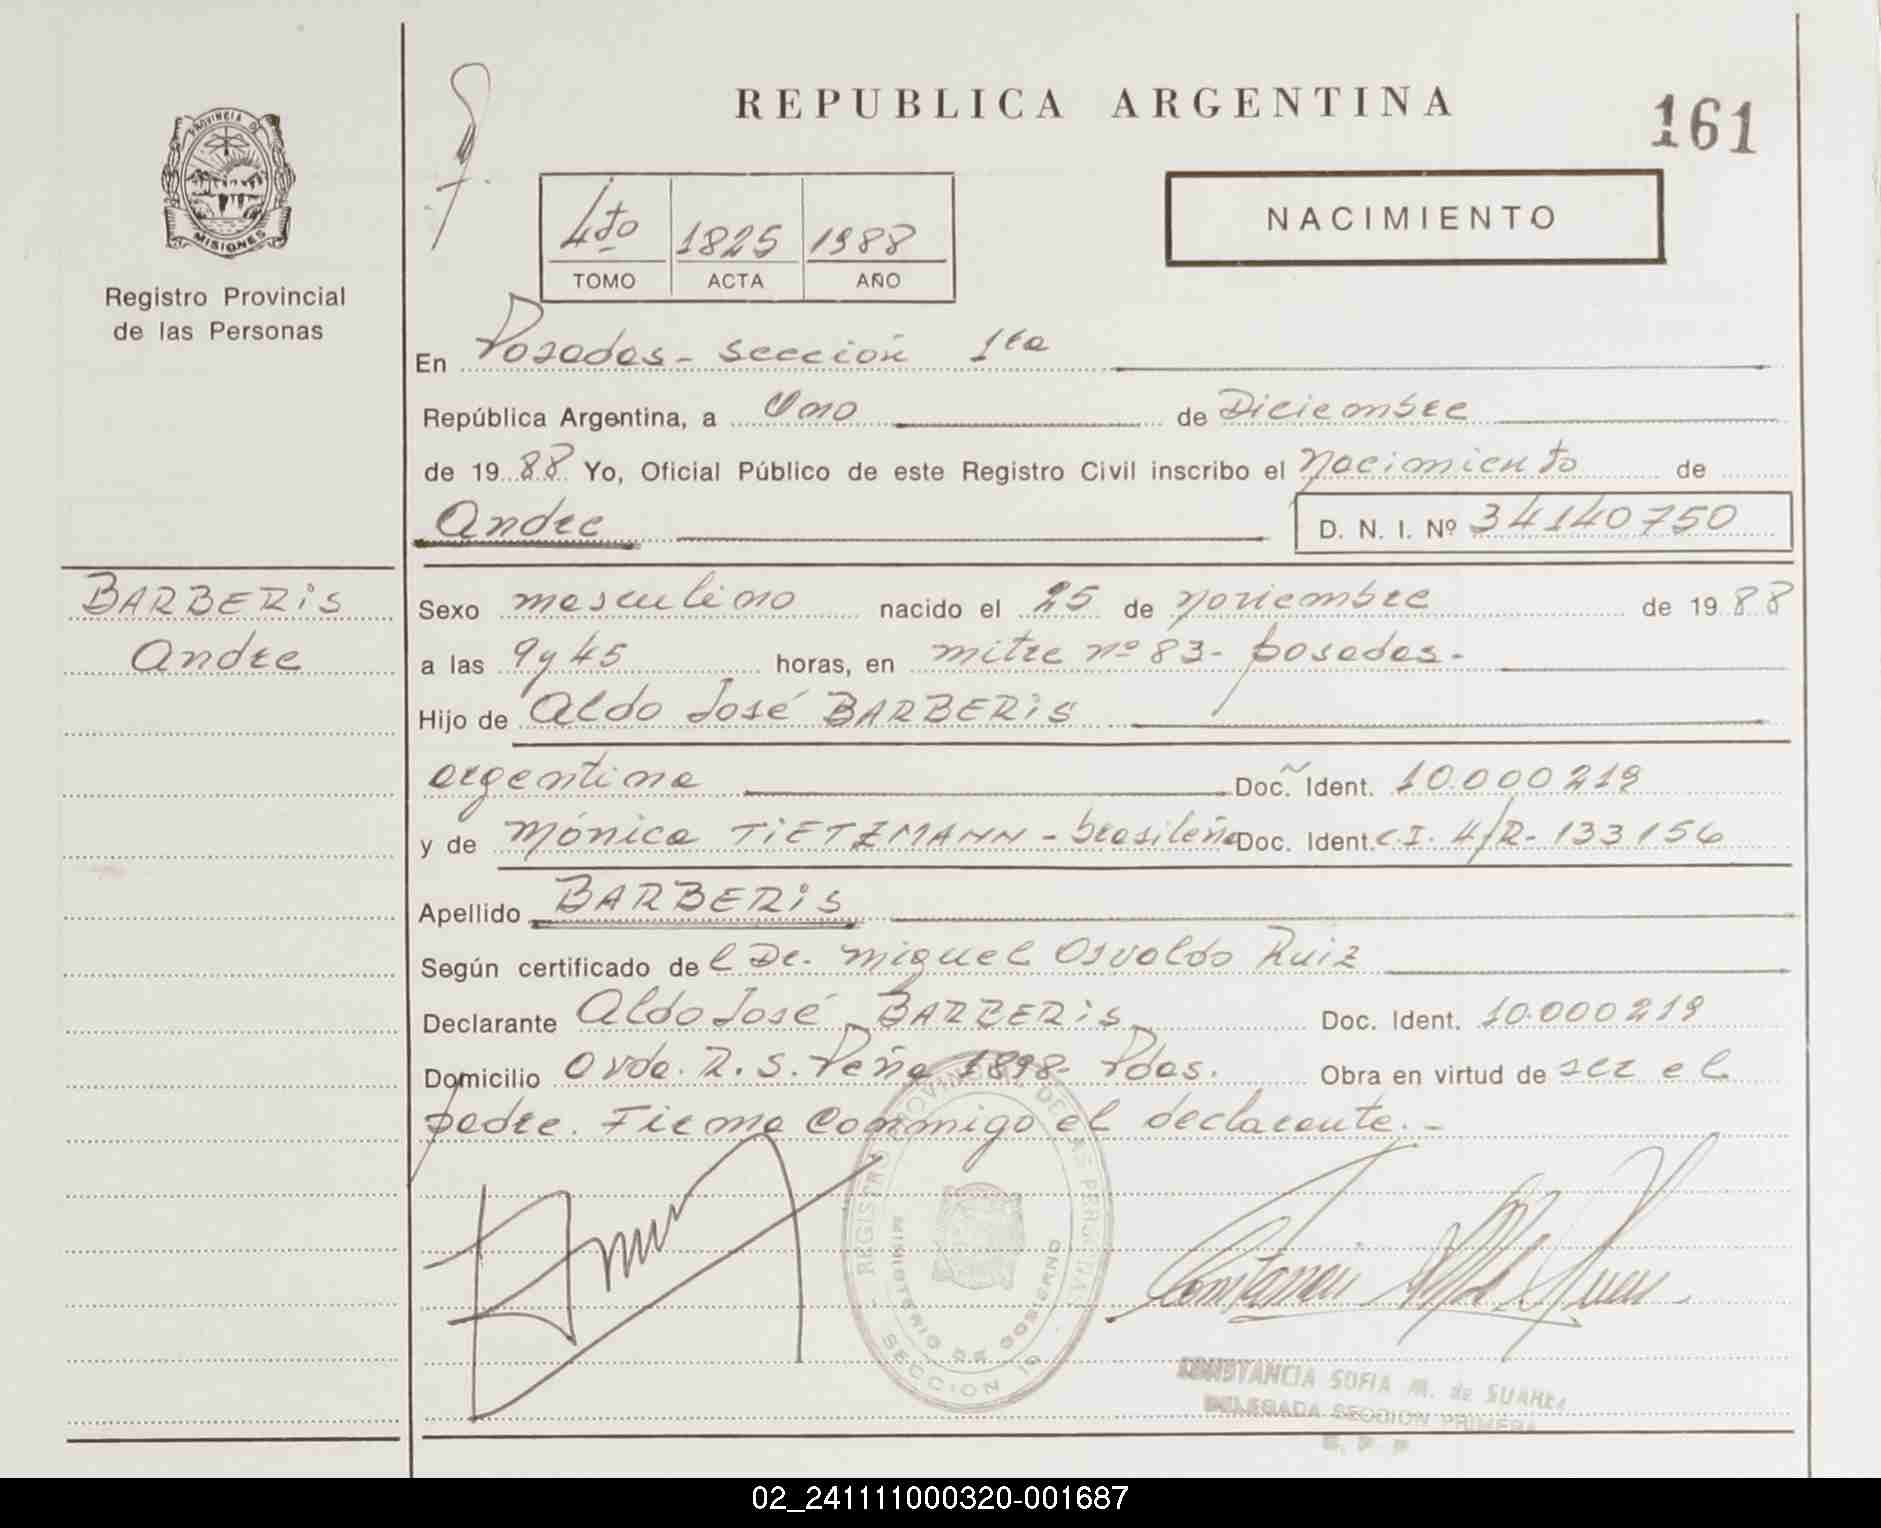 REPUBLICA ARGENTINA
161
PROVINCIA DE
MISIONES
Registro Provincial
de las Personas
4to 1825 1988
TOMO ACTA AÑO
NACIMIENTO
En Posadas - sección 1ra
República Argentina, a Uno de Diciembre
de 1988 Yo, Oficial Público de este Registro Civil inscribo el Nacimiento de
Andre D. N. I. Nº 34140750
BARBERiS
Andre
Sexo masculino nacido el 25 de noviembre de 1988
a las 9 y 45 horas, en mitre nº 83 - posadas.-
Hijo de Aldo José BARBERiS
argentino Doc. Ident. 10.000219
y de Mónica TiETZMANN - brasileña Doc. Ident. C.I. 4/R-133156
Apellido BARBERiS
Según certificado del Dr. Miguel Osvaldo Ruiz
Declarante Aldo José BARBERiS Doc. Ident. 10.000219
Domicilio Avda. R. S. Peña 1898 - Pdas. Obra en virtud de ser el
padre. Firma conmigo el declarante.-
REGISTRO PROVINCIAL DE LAS PERSONAS
MINISTERIO DE GOBIERNO
SECCION 1º
CONSTANCIA SOFIA M. de SUAREZ
DELEGADA SECCION PRIMERA
02_241111000320-001687